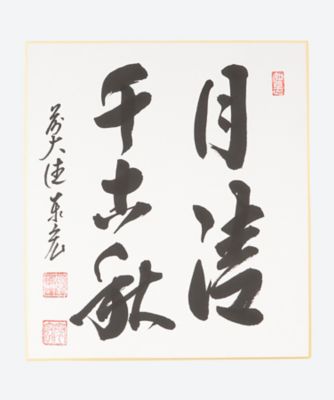 月清
千古秋
前大徳